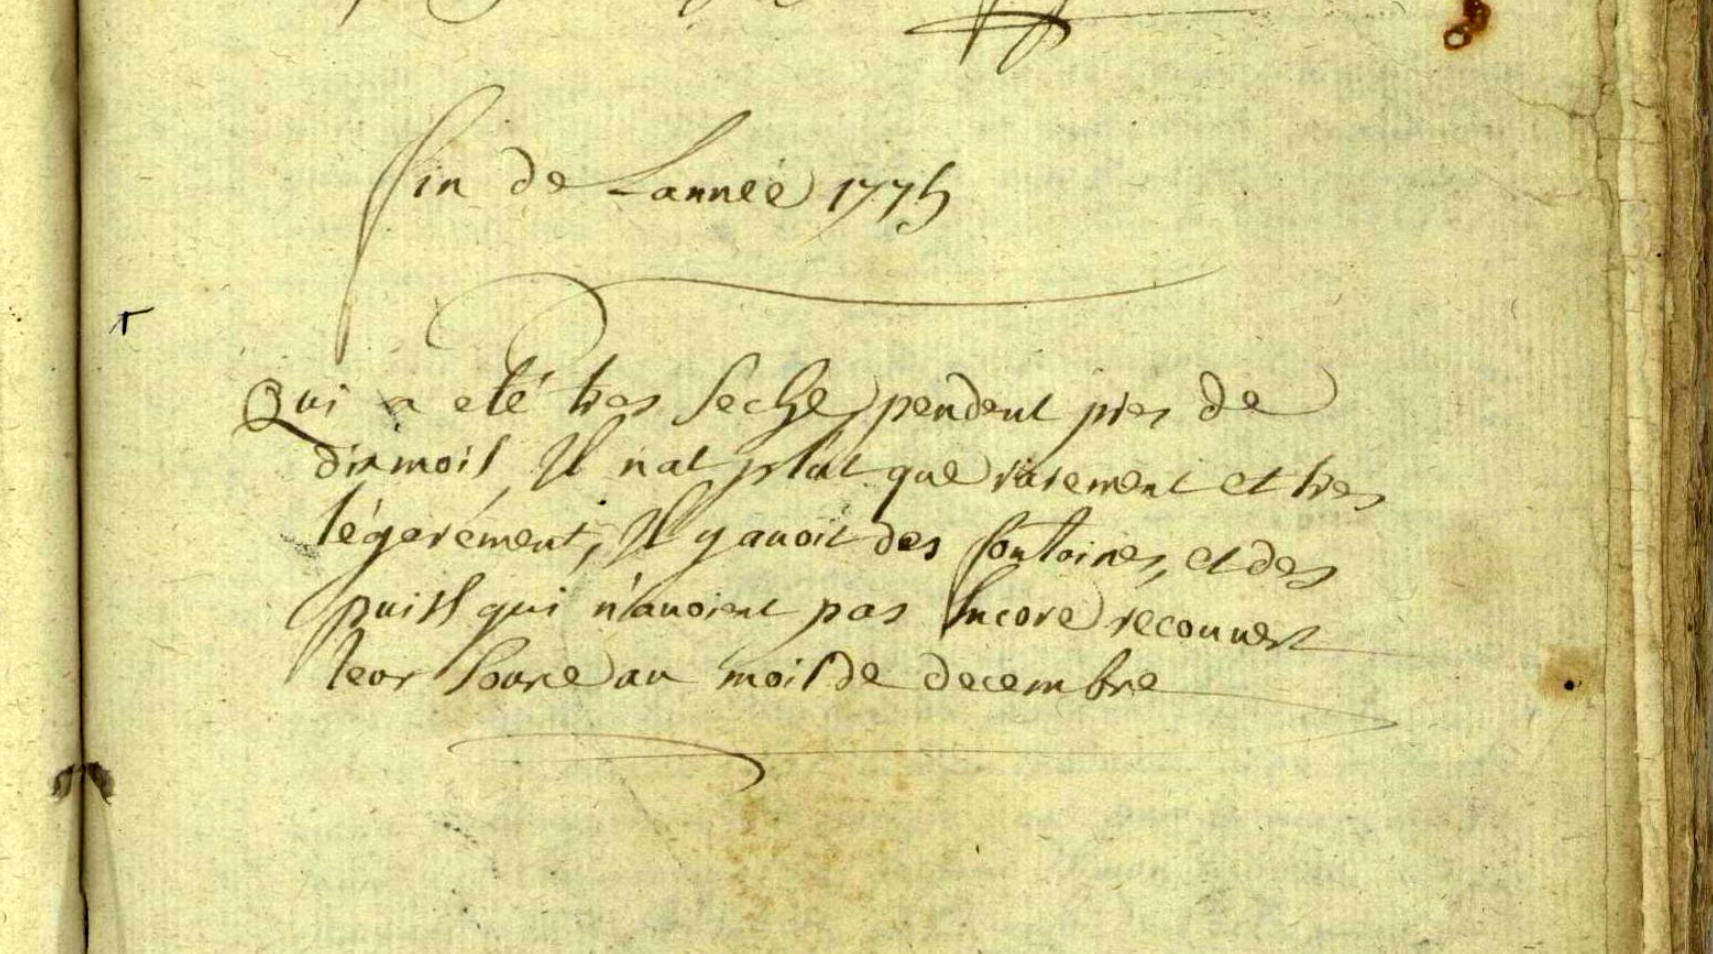 fin de Lannéé 1775
Qui a eté tres seche, pendent pres de
dix mois, Il n'at plut que rarement et tres
légerément, Il y avoit des fontaines, et des
puist qui n'avoient pas Encore recouvert
leur source au mois de decembre